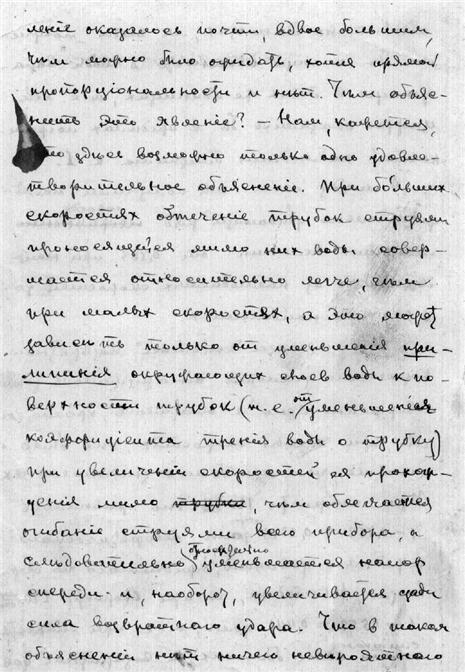 леніе оказалось почти, вдвое большим,
чѣм можно было ожидать, хотя прямой
пропорціональности и нѣт. Чѣм объяс-
нить это явленіе? — Нам, кажется,
что здѣсь возможно только одно удовле-
творительное объясненіе. При больших
скоростях обтеченіе трубок струями
проносящейся мимо них воды совер-
шается относительно легче, чѣм
при малых скоростях, а это может
зависѣть только от уменьшенія при-
липанія окружающих слоев воды к по-
верхности трубок (т. е. от уменьшенія
коэффиціента тренія воды о трубку)
при увеличеніи скоростей ея прохож-
денія мимо трубки, чѣм облегчается
огибаніе струями всего прибора, а
слѣдовательно уменьшается напор
спереди и, наоборот, увеличивается сзади
сила возвратнаго удара. Что в таком
объясненіи нѣт ничего невѣроятнаго